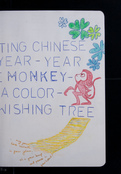 TING CHINESE
YEAR - YEAR
E MONKEY-
A COLOR-
WISHING TREE